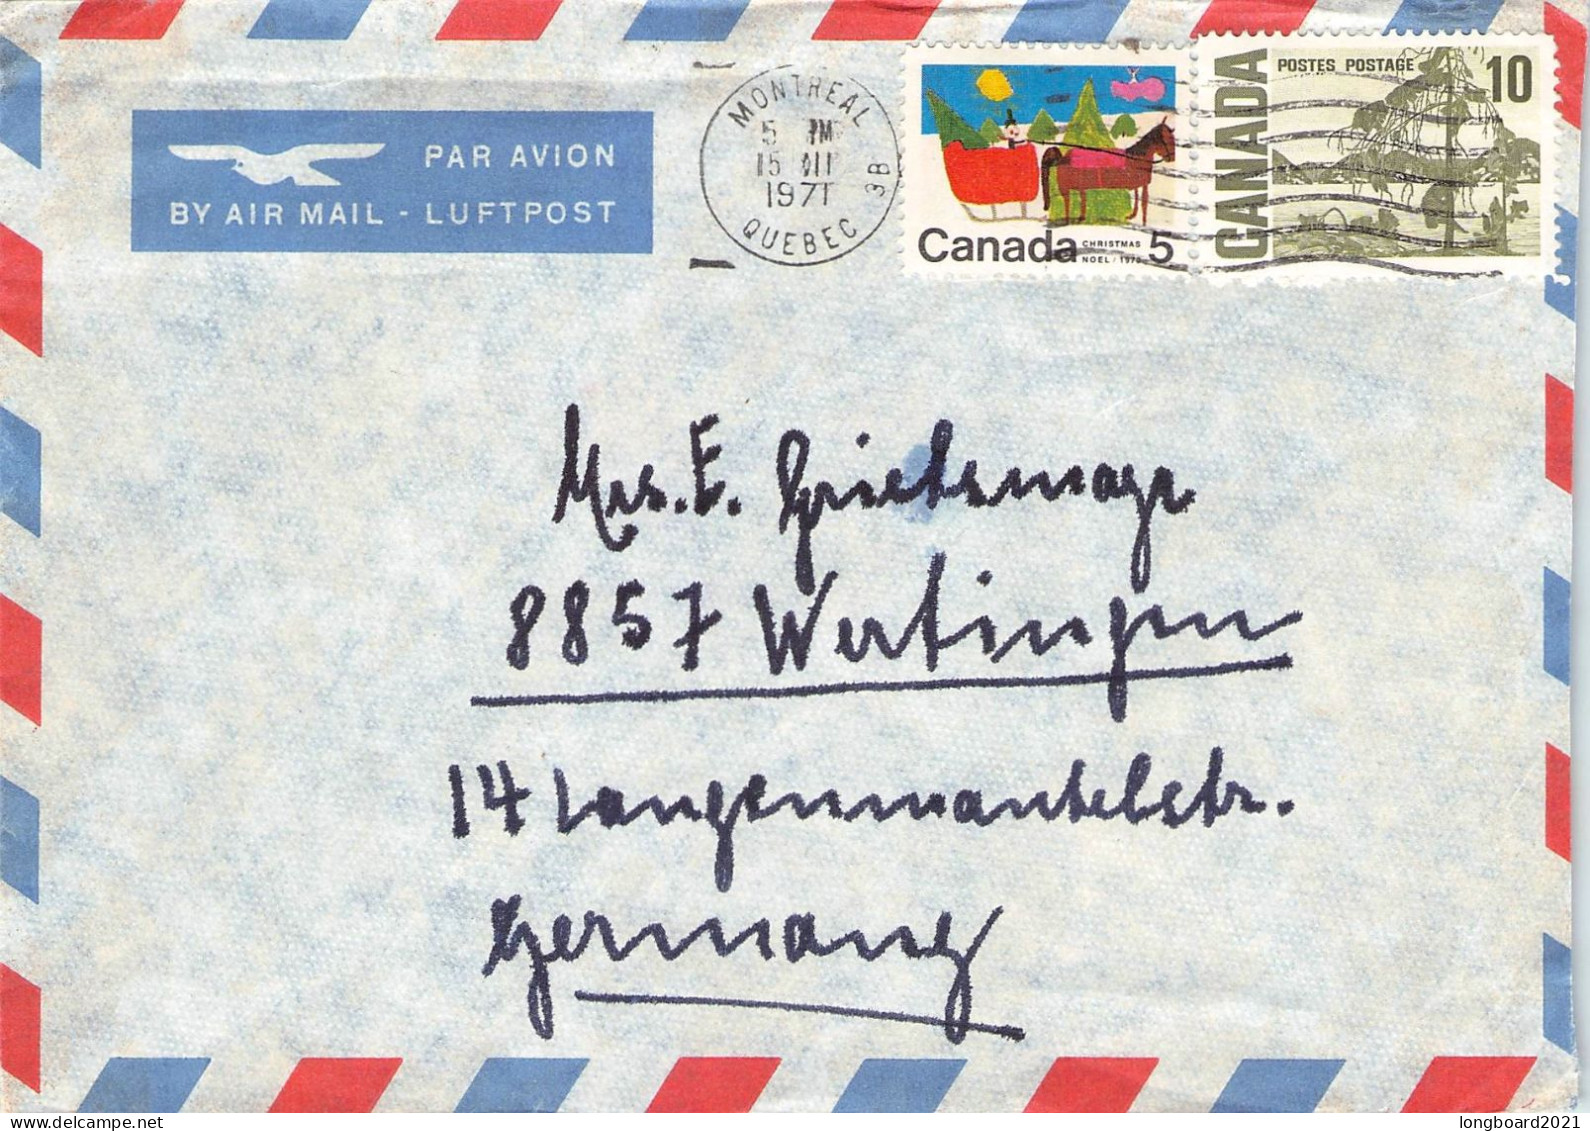 PAR AVION
BY AIR MAIL - LUFTPOST
MONTREAL
5 PM
15
1971
QUEBEC
3B
Canada
CHRISTMAS
NOEL / 1970
5
CANADA
POSTES POSTAGE
10
Mrs. E.
8857 Wertingen
14 Langenmantelstr.
Germany
longboard2021